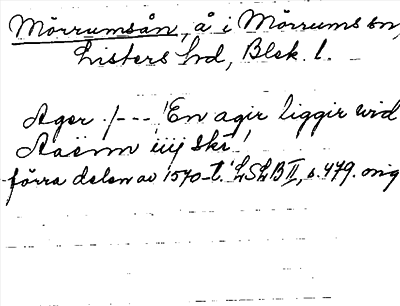 Mörrumsån, å i Mörrums sn,
Listers hd, Blek. l.
Ager /--- 'En agir liggir wid
Aaenn iiij skt'
förra delen av 1570-t. LSLB II, s. 479. orig